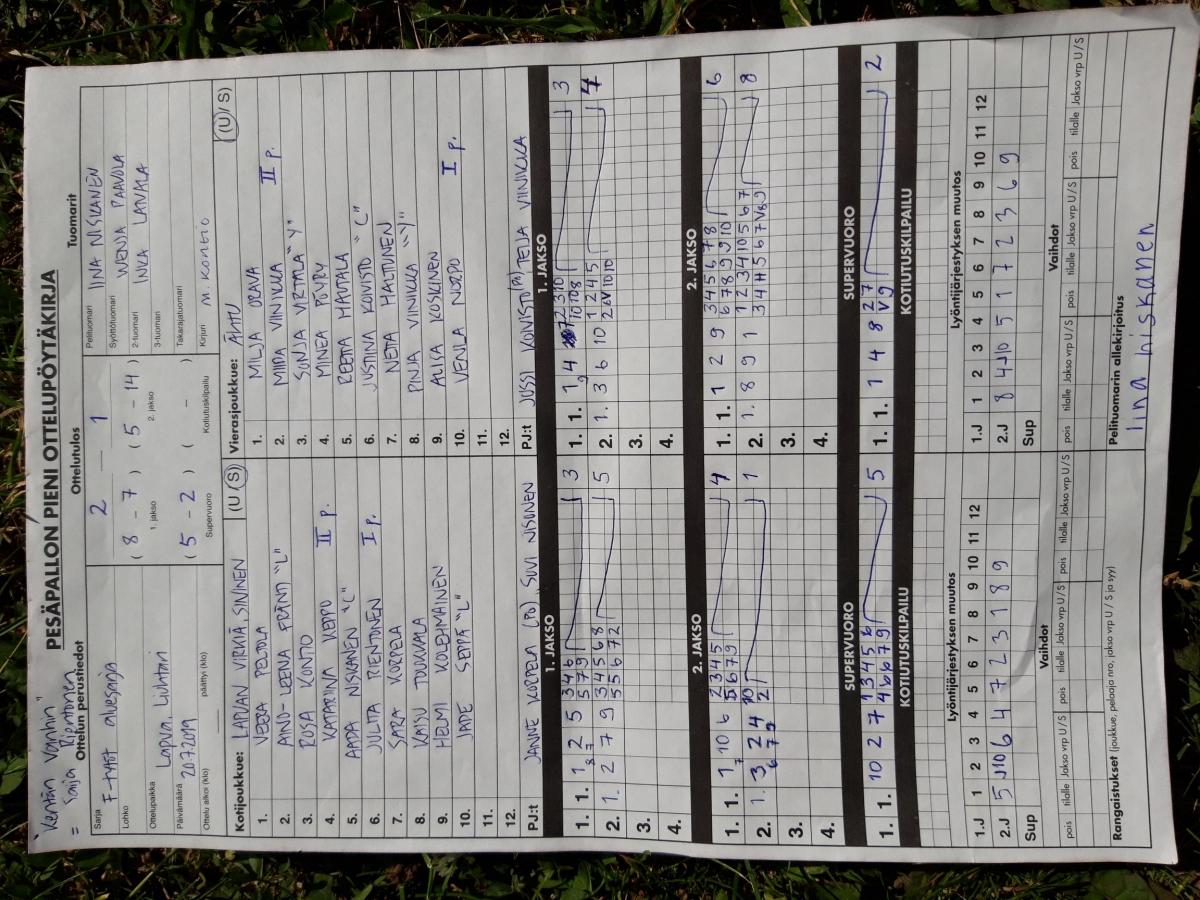 "Kentän Vanhin"
= Sanja Rientonen
PESÄPALLON PIENI OTTELUPÖYTÄKIRJA
Ottelun perustiedot
Sarja F-tytöt aluesarja
Lohko
Ottelupaikka Lapua, Liuhtari
Päivämäärä 20.7.2019
Ottelu alkoi (klo) päättyi (klo)
Ottelutulos
2 — 1
( 8 - 7 ) ( 5 - 14 )
1. jakso 2. jakso
( 5 - 2 ) ( - )
Supervuoro Kotiutuskilpailu
Tuomarit
Pelituomari IINA NISKANEN
Syöttötuomari WENJA PAAVOLA
2-tuomari INKA LATVALA
3-tuomari
Takarajatuomari
Kirjuri M. KONTIO
Kotijoukkue: LAPUAN VIRKIÄ, SININEN (U / S)
1. VEERA PELTOLA
2. AINO-LEENA FRÄNTI "L"
3. ROSA KONTO
4. KATARIINA KEPPO II p.
5. AADA NISKANEN "C"
6. JULITA RIENTONEN I p.
7. SARA KORPELA
8. KAISU TOUKKALA
9. HELMI KOLEHMAINEN
10. JADE SEPPÄ "L"
11.
12.
PJ:t JANNE KORPELA (PJ), SUVI NISONEN
Vierasjoukkue: ÄHTU (U / S)
1. MILJA ORAVA
2. MIIRA VIINIKKA II p.
3. SONJA VIRTALA "Y"
4. MINEA PÖYRY
5. REETTA MAUTALA
6. JUSTIINA KOIVISTO "C"
7. NETTA HALTUNEN
8. PINJA VIINIKKA "Y"
9. ALISA KOSKINEN
10. VENLA NORPO I p.
11.
12.
PJ:t JUSSI KOIVISTO (PJ) TEIJA VIINIKKA
1. JAKSO
1. 1. 1 2 5 3 4 6 3
8 7 5 7 9
2. 1. 2 7 9 3 4 5 6 8 5
5 5 6 7 2
3.
4.
1. JAKSO
1. 1. 1, 4 7 2 3 10 3
9 10 10 8
2. 1. 3 6 10 1 2 4 5 4
2 6 V 10 10
3.
4.
2. JAKSO
1. 1. 1 10 6 2 3 4 5 4
7 5 6 7 9
2. 1. 3 2 4 10 1
6 7 9 2
3.
4.
2. JAKSO
1. 1. 1 2 9 3 4 5 6 7 8 6
6 7 8 9 9 10
2. 1. 8 9 1 1 2 3 4 10 5 6 7 8
3 4 4 5 6 7 V 8 9
3.
4.
SUPERVUORO
1. 1. 10 2 7 1 3 4 5 6 5
4 6 6 7 9
SUPERVUORO
1. 1. 1 4 8 2 7 2
V 9
KOTIUTUSKILPAILU
KOTIUTUSKILPAILU
Lyöntijärjestyksen muutos
1.J 1 2 3 4 5 6 7 8 9 10 11 12
2.J 5 J10 6 4 7 2 3 1 8 9
Sup
Lyöntijärjestyksen muutos
1.J 1 2 3 4 5 6 7 8 9 10 11 12
2.J 8 4 J10 5 1 7 2 3 6 9
Sup
Vaihdot
pois tilalle Jakso vrp U / S pois tilalle Jakso vrp U / S pois tilalle Jakso vrp U / S
Vaihdot
pois tilalle Jakso vrp U / S pois tilalle Jakso vrp U / S pois tilalle Jakso vrp U / S
Rangaistukset (joukkue, pelaaja nro, jakso vrp U / S ja syy)
Pelituomarin allekirjoitus
Iina Niskanen